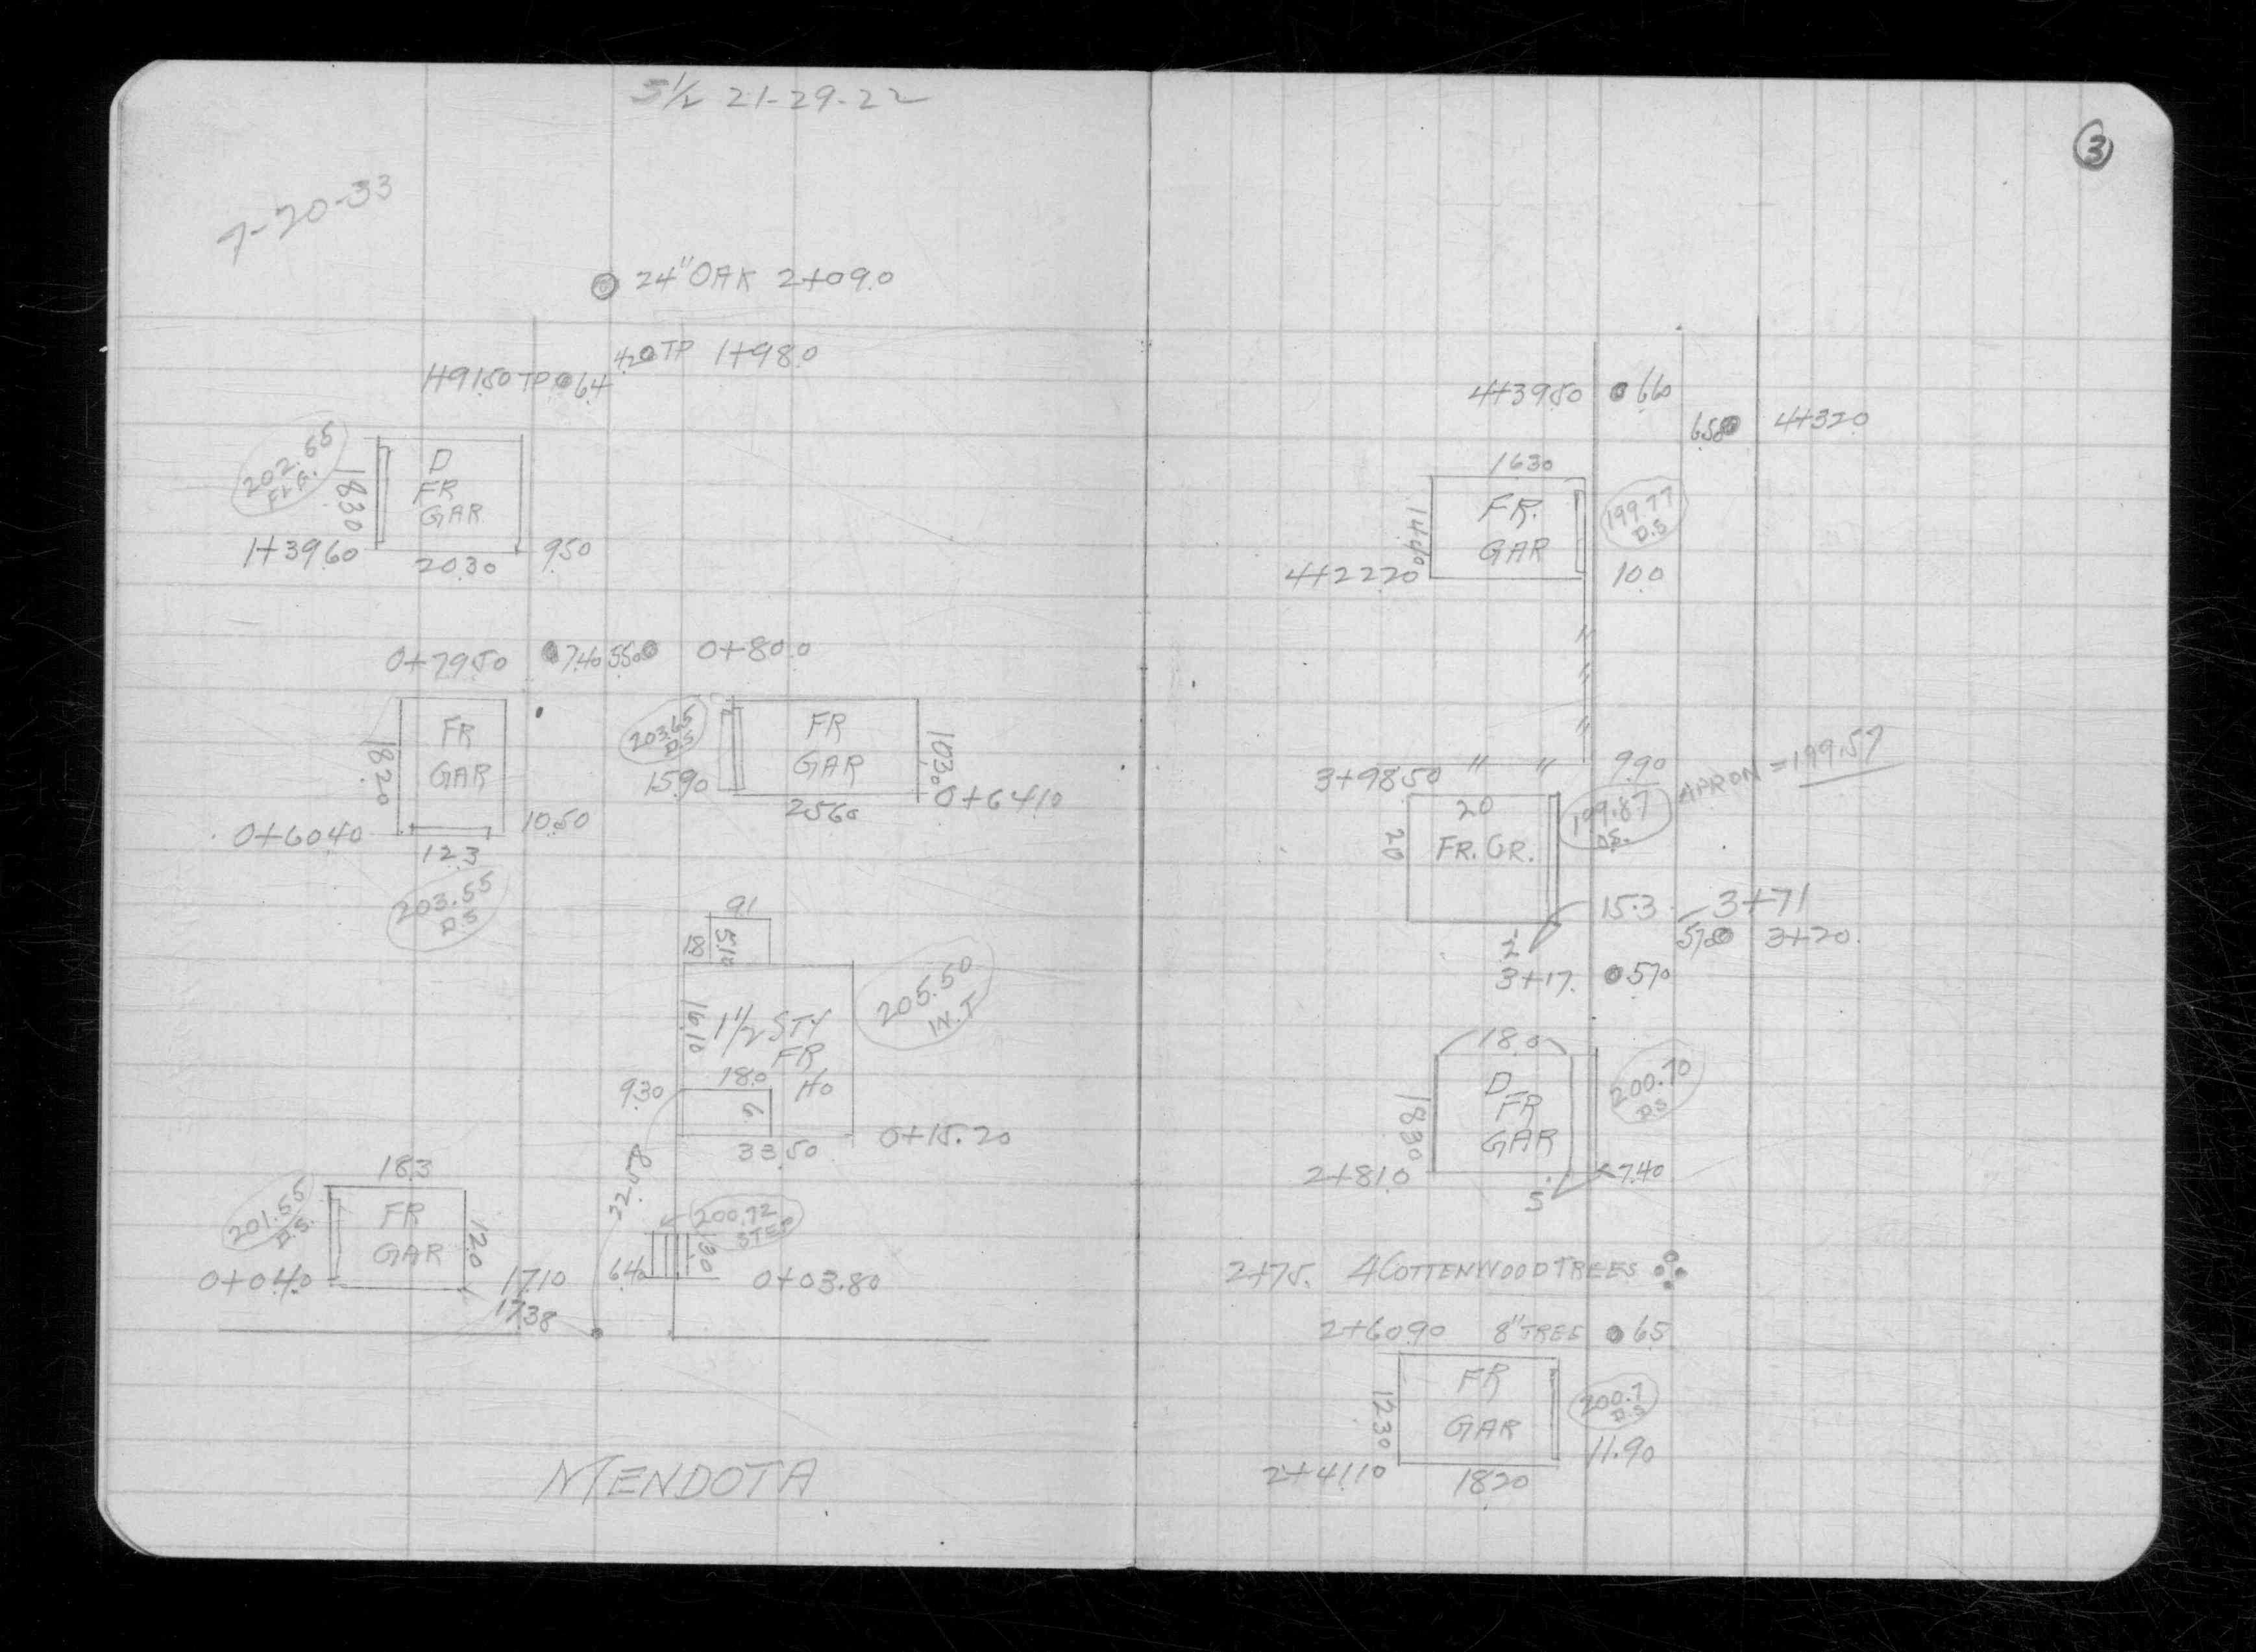 S 1/2 21-29-22
7-20-33
24" OAK 2+09.0
4.20 TP 1+98.0
1+91.50 TP 6.4
202.65
FLG.
18.30
D
FR
GAR
1+39.60
20.30
9.50
0+79.50
7.40
5.50
0+80.0
18.20
FR
GAR
0+60.40
10.50
12.3
203.55
D.S
203.65
D.S
15.90
FR
GAR
10.30
25.60
0+64.10
91
18
5.10
16.10
1 1/2 STY
FR
HO
205.50
W.T
9.30
18.0
6.
33.50
0+15.20
22.58
18.3
201.55
D.S.
FR
GAR
12.0
0+04.0
17.10
17.38
200.72
STEP
6.40
0+03.80
MENDOTA
3
4+39.50 6.60
6.50 4+32.0
16.30
14.40
FR.
GAR
199.77
D.S
4+22.20
10.0
" " "
3+98.50 " " 9.90
APRON = 199.57
20
20
FR. GR.
199.87
D.S.
15.3 3+71
2
5.70 3+20.
3+17. 5.70
18.0
18.30
D
FR
GAR
200.70
D.S
2+81.0
7.40
5
2+75. 4 COTTENWOOD TREES
2+60.90 8" TREE 6.5
12.30
FR
GAR
200.7
D.S
11.90
2+41.10
18.20